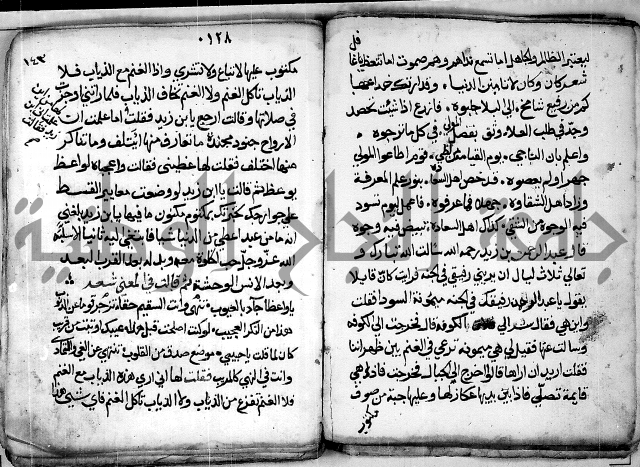 قل
ليعتبر الظالم والجاهل اما تسمع تذاهم وهم صموت اما تنعظ يا غا
شعر كان وكان لا تامنن الدنيا وقد ارتك خداعها
كم من رفيع شامخ الى البلا جبوه فازرع اذا شئت تحصد
وجد في طلب العلا وثق بفضل المولى في كل ما ترجوه
واعلم بان الناجي يوم القيامة من لقى قوم اطاعوا المولى
ولم يعصوه قد خص اهل بنور علم المعرفة
وزاد اهل الشقاوة جهلهم فما عرفوه فاعمل ليوم تسود
فيه الوجوه من الشقي كذلك اهل السعادة تبيض فيه وجوه
قال عبد الرحمن بن زيد رحمه الله سالت الله تبارك و
تعالى ثلاث ليال ان يريني رفيقي في الجنة فرايت كان قايلا
يقول يا عبد الرحمن رفيقتك في الجنة ميمونة السودا فقلت
واين هي فقال الى الكوفة قال فخرجت الى الكوفه
وسالت عنها فقيل لي هي ميمونه ترعى في الغنم بين ظهراننا
فقلت اريد ان اراها قالوا اخرج الى الجبال فخرجت فاذا هي
قايمة تصلي فاذا بين يديها عكاز لها وعليها جبة من صوف
مكتوب
٠١٢٨
١٤٣
مكتوب عليها لا تباع ولا تشترى واذا الغنم مع الذياب فلا
الذياب تاكل الغنم ولا الغنم تخاف الذياب فلما راتني اوجزت
في صلاتها وقالت ارجع يا بن زيد فقلت اما علمت ان
الارواح جنود مجندة ما تعارف منها ائتلف وما تناكر
منها اختلف فقلت لها عظيني فقالت واعجباه لواعظ
يوعظ ثم قالت يا ابن زيد لو وضعت معايير القسط
على جوارحك لخبرتك بمكتوم مكنون ما فيها يا بن زيد بلغني
انه ما من عبد اعطي من الدنيا شيا فابتغى اليه ثانيا الا سلبه
الله عز وجل حب الخلوة معه وبدله بعد القرب البعد
وبعد الانس الوحشة ثم قالت في المعنى شعر
يا واعظا جاد بالحبوب تنهى وانت السقيم حقا تزجر قوما عن الذنوب
هذا من المنكر العجيب لو كنت اصلحت قبل هذا عيبك او تبت من قريب
كان لما قلت يا حبيبي موضع صدق من القلوب تنهى عن الغي والتمادي
وانت في النهي كالمريب فقلت لها اني ارى هذه الذياب مع الغنم
فلا الغنم تفزع من الذياب ولا الذياب تاكل الغنم فاي شي هذا